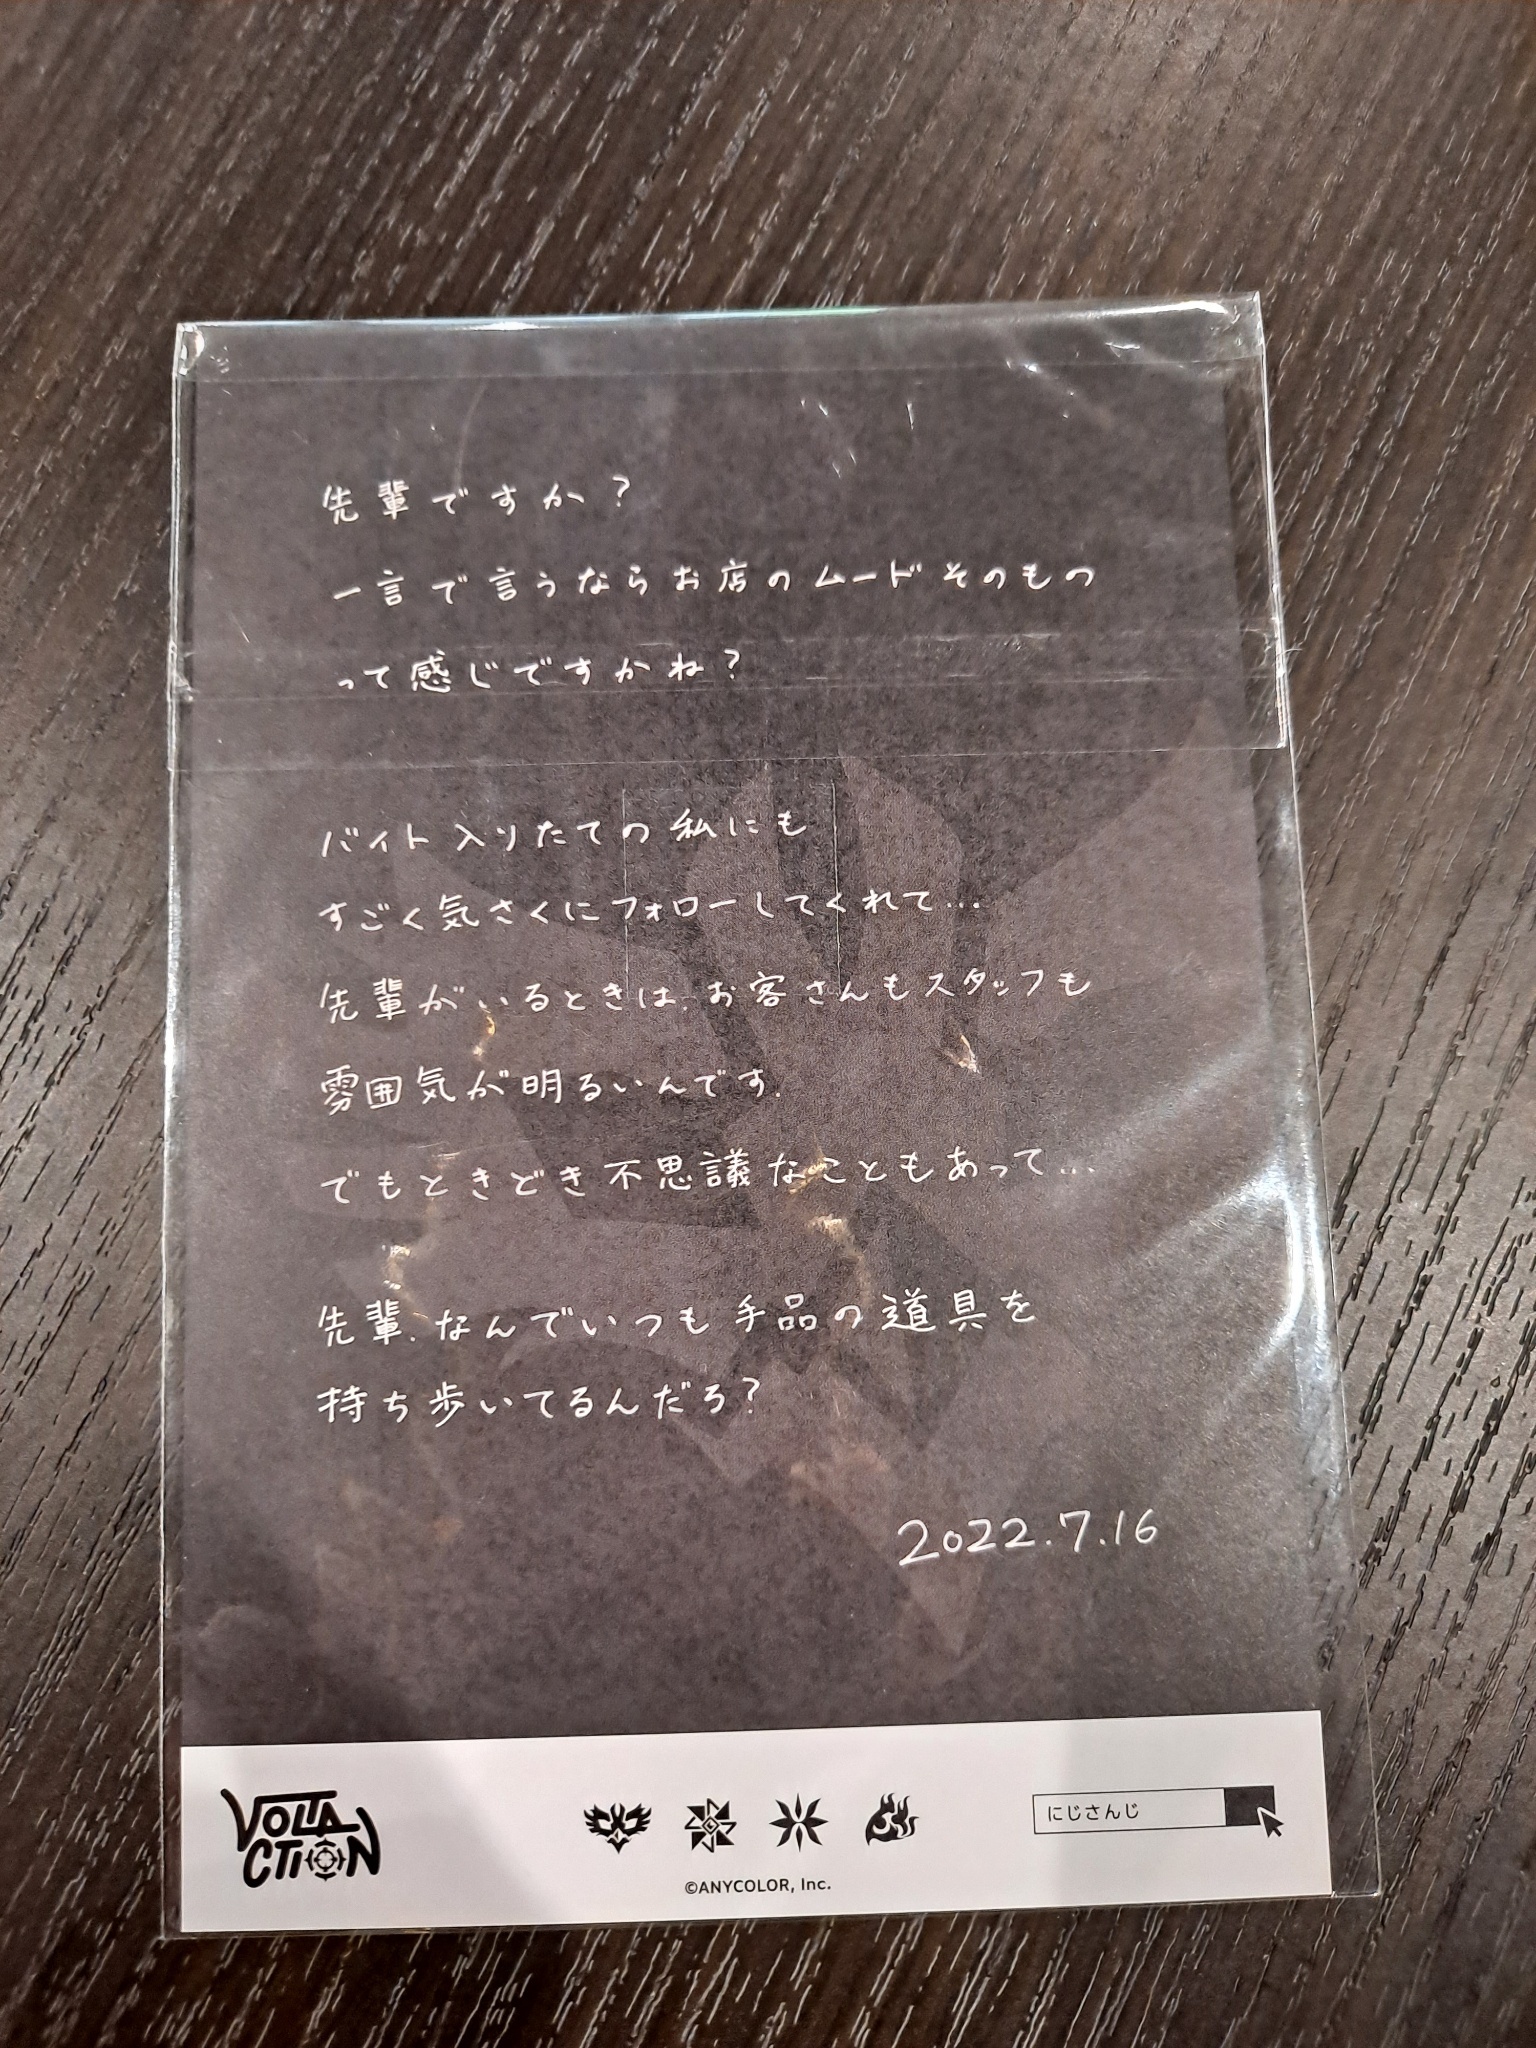 先輩ですか？
一言で言うならお店のムードそのもの
って感じですかね？
バイト入りたての私にも
すごく気さくにフォローしてくれて…
先輩がいるときは、お客さんもスタッフも
雰囲気が明るいんです。
でもときどき不思議なこともあって…
先輩、なんでいつも手品の道具を
持ち歩いてるんだろ？
2022.7.16
VOLTACTION
にじさんじ
©ANYCOLOR, Inc.